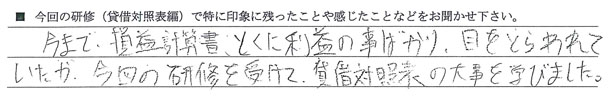 ■ 今回の研修（貸借対照表編）で特に印象に残ったことや感じたことなどをお聞かせ下さい。
今まで、損益計算書、とくに利益の事ばかり、目をとらわれて
いたが、今回の研修を受けて、貸借対照表の大事を学びました。